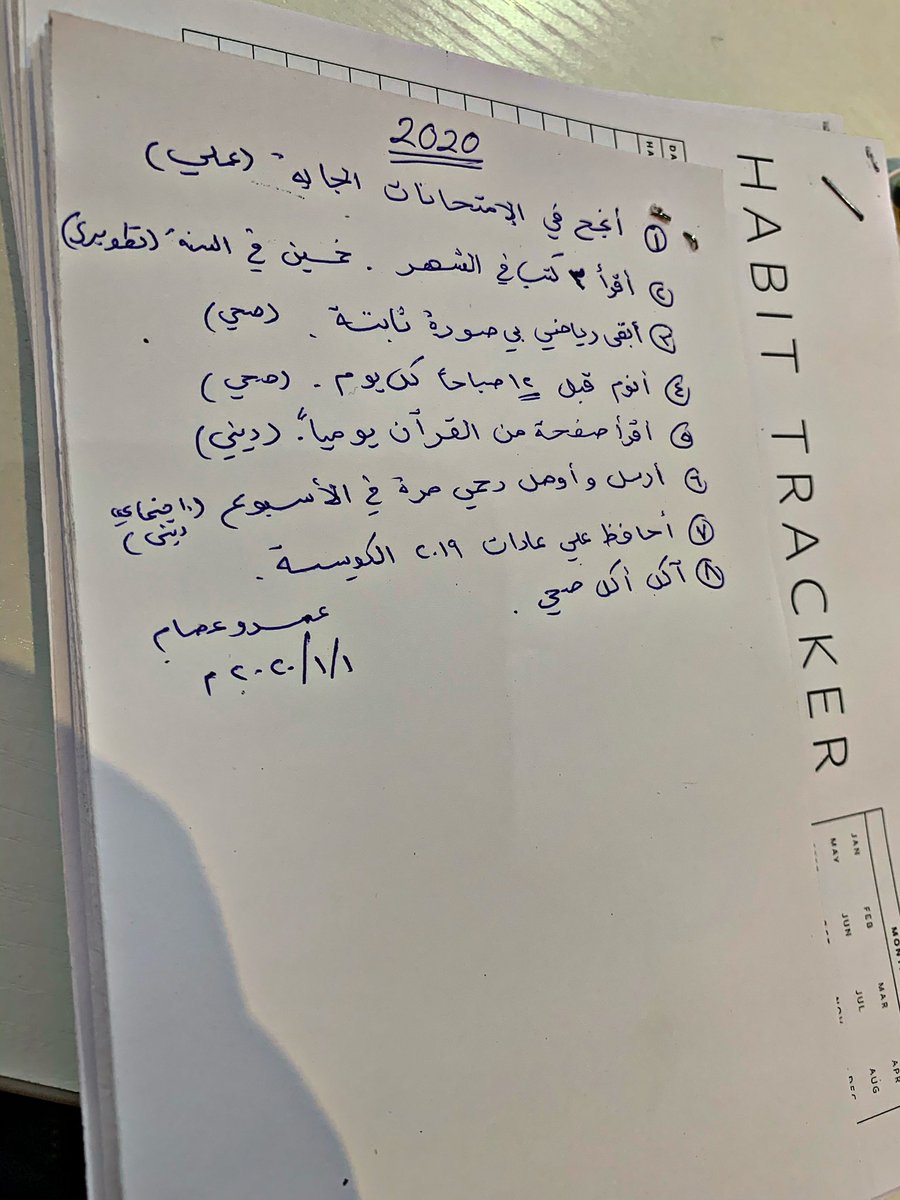 2020
① أنجح في الإمتحانات الجايه (عملي)
② أقرأ ٣ كتب في الشهر . خمسين في السنه (تطويري)
③ أبقى رياضي بي صورة ثابتة . (صحي)
④ أنوم قبل ١٢ صباحاً كل يوم . (صحي)
⑤ أقرأ صفحة من القرآن يومياً. (ديني)
⑥ أرسل و أوصل رحمي مرة في الأسبوع (إجتماعي
ديني)
⑦ أحافظ علي عادات ٢٠١٩ الكويسة .
⑧ آكل أكل صحي .
عمرو عصام
٢٠٢٠/١/١ م
HABIT TRACKER
DA
HA
MON
JAN FEB MAR APR
MAY JUN JUL AUG